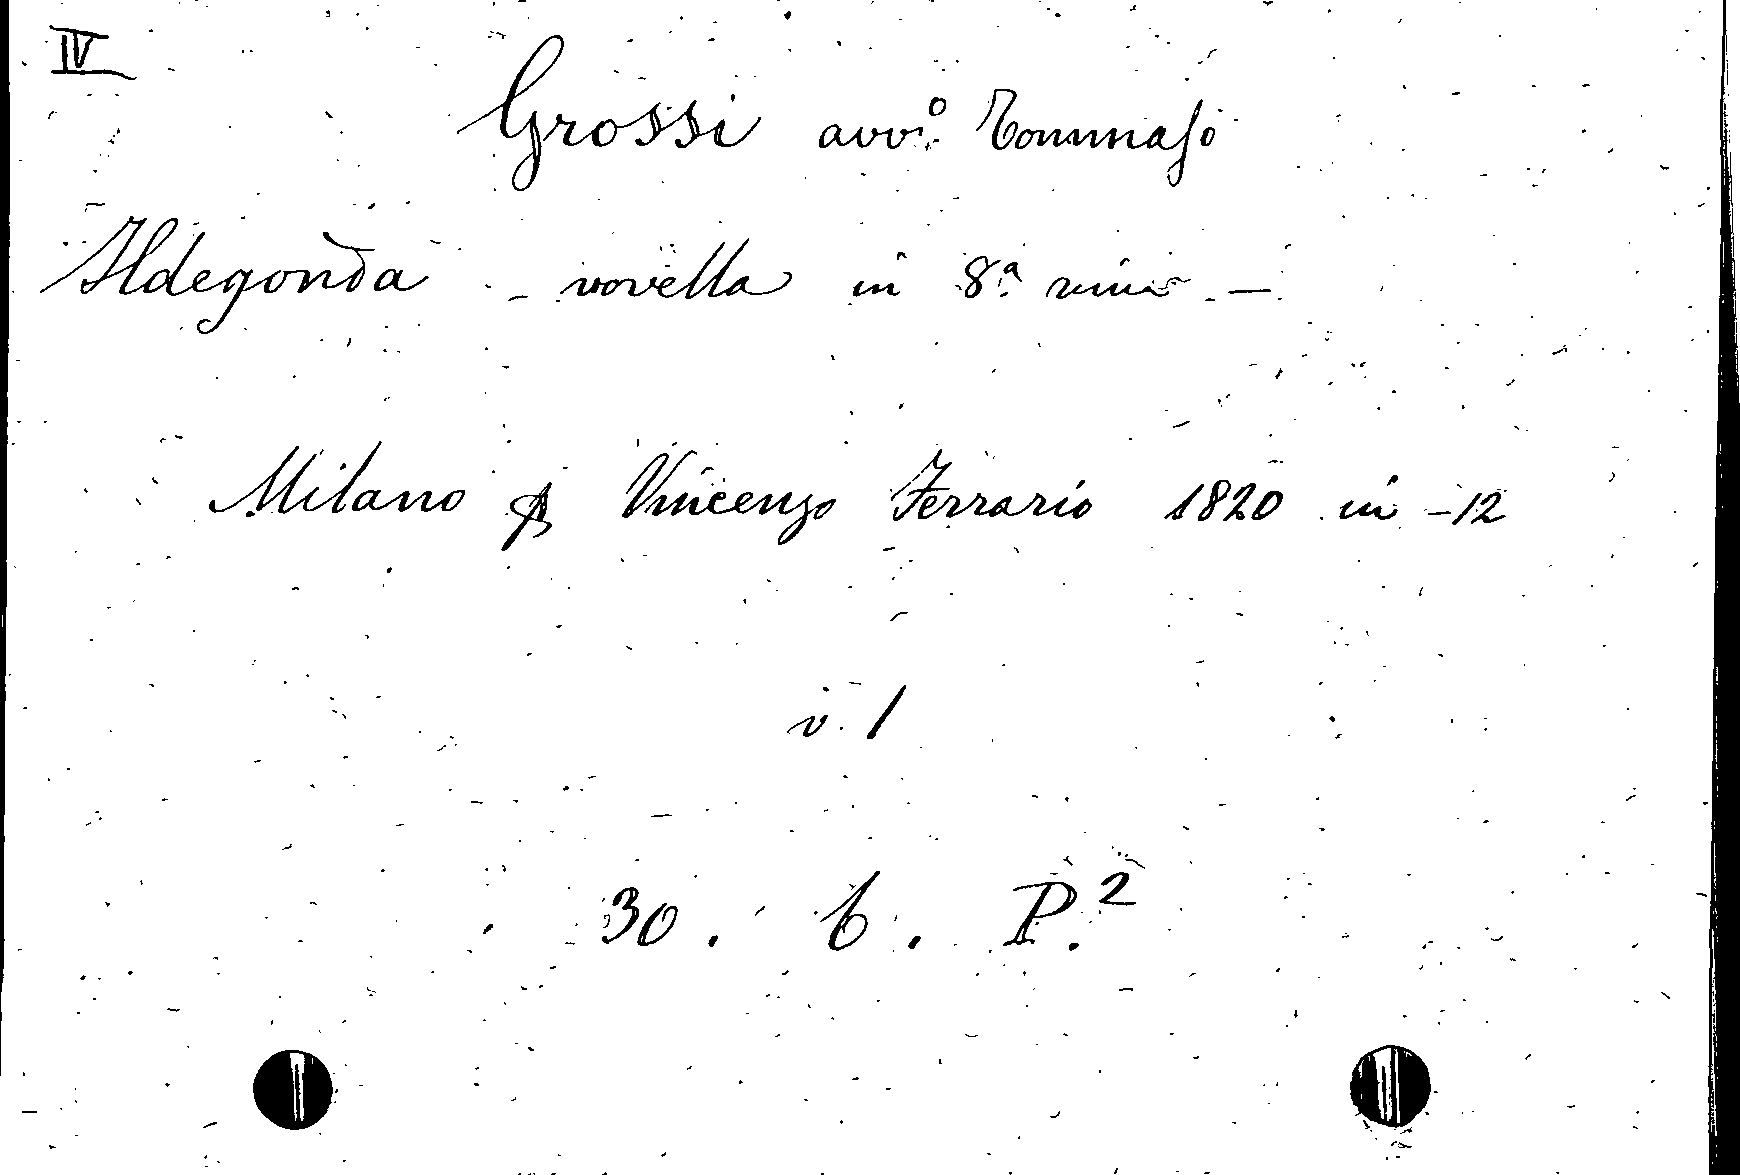 IV
Grossi avv.o Tommaso
Ildegonda - novella in 8.a rima -
Milano p Vincenzo Ferrario 1820 in -12
v. 1
30. b. P.2